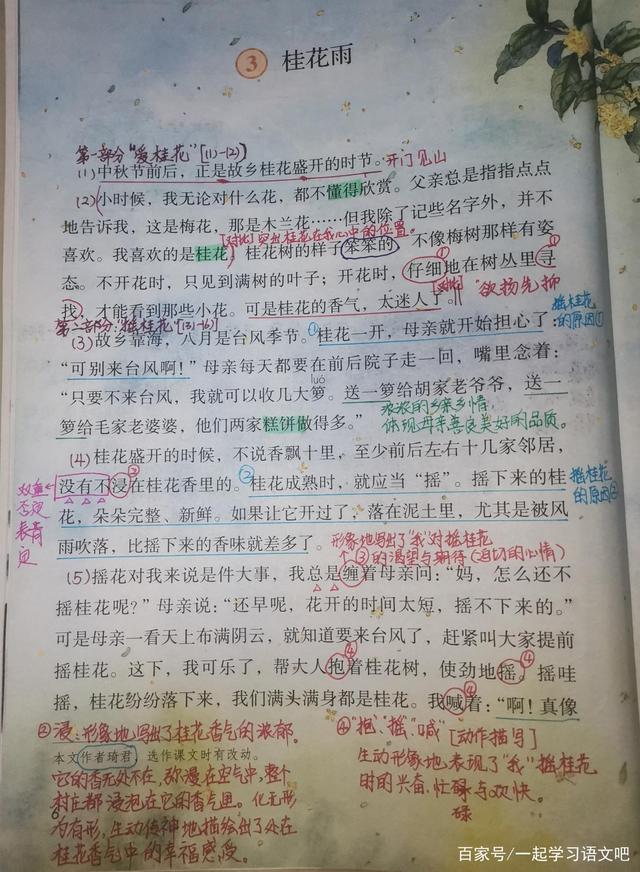 3 桂花雨
第一部分“爱桂花”[(1)-(2)]
(1)中秋节前后，正是故乡桂花盛开的时节。开门见山
(2)小时候，我无论对什么花，都不懂得欣赏。父亲总是指指点点
地告诉我，这是梅花，那是木兰花……但我除了记些名字外，并不
[对比]突出桂花在我心中的位置。
喜欢。我喜欢的是桂花。桂花树的样子笨笨的，不像梅树那样有姿
态。不开花时，只见到满树的叶子；开花时，仔细地在树丛里寻
①
①
找，才能看到那些小花。可是桂花的香气，太迷人了。
欲扬先抑
第二部分：摇桂花[(3)-(6)]
(3)故乡靠海，八月是台风季节。①桂花一开，母亲就开始担心了：
摇桂花
的原因①
“可别来台风啊！”母亲每天都要在前后院子走一回，嘴里念着：
luó
“只要不来台风，我就可以收几大箩。送一箩给胡家老爷爷，送一
箩给毛家老婆婆，他们两家糕饼做得多。”
浓浓的乡亲乡情，
体现母亲善良美好的品质。
(4)桂花盛开的时候，不说香飘十里，至少前后左右十几家邻居，
②
没有不浸在桂花香里的。②桂花成熟时，就应当“摇”。摇下来的桂
摇桂花
的原因②
双重
否定
表肯
定
花，朵朵完整、新鲜。如果让它开过了，落在泥土里，尤其是被风
雨吹落，比摇下来的香味就差多了。
形象地写出了“我”对摇桂花
③的渴望与期待（迫切的心情）
(5)摇花对我来说是件大事，我总是缠着母亲问：“妈，怎么还不
摇桂花呢？”母亲说：“还早呢，花开的时间太短，摇不下来的。”
可是母亲一看天上布满阴云，就知道要来台风了，赶紧叫大家提前
④
④
摇桂花。这下，我可乐了，帮大人抱着桂花树，使劲地摇。摇哇
④
摇，桂花纷纷落下来，我们满头满身都是桂花。我喊着：“啊！真像
②浸：形象地写出了桂花香气的浓郁。
本文作者琦君，选作课文时有改动。
它的香无处不在，弥漫在空气中，整个
村庄都浸泡在它的香气里。化无形
6
为有形，生动传神地描绘出了处在
桂花香气中的幸福感受。
④“抱”“摇”“喊”[动作描写]
生动形象地表现了“我”摇桂花
时的兴奋、忙碌与欢快。
碌
百家号/一起学习语文吧